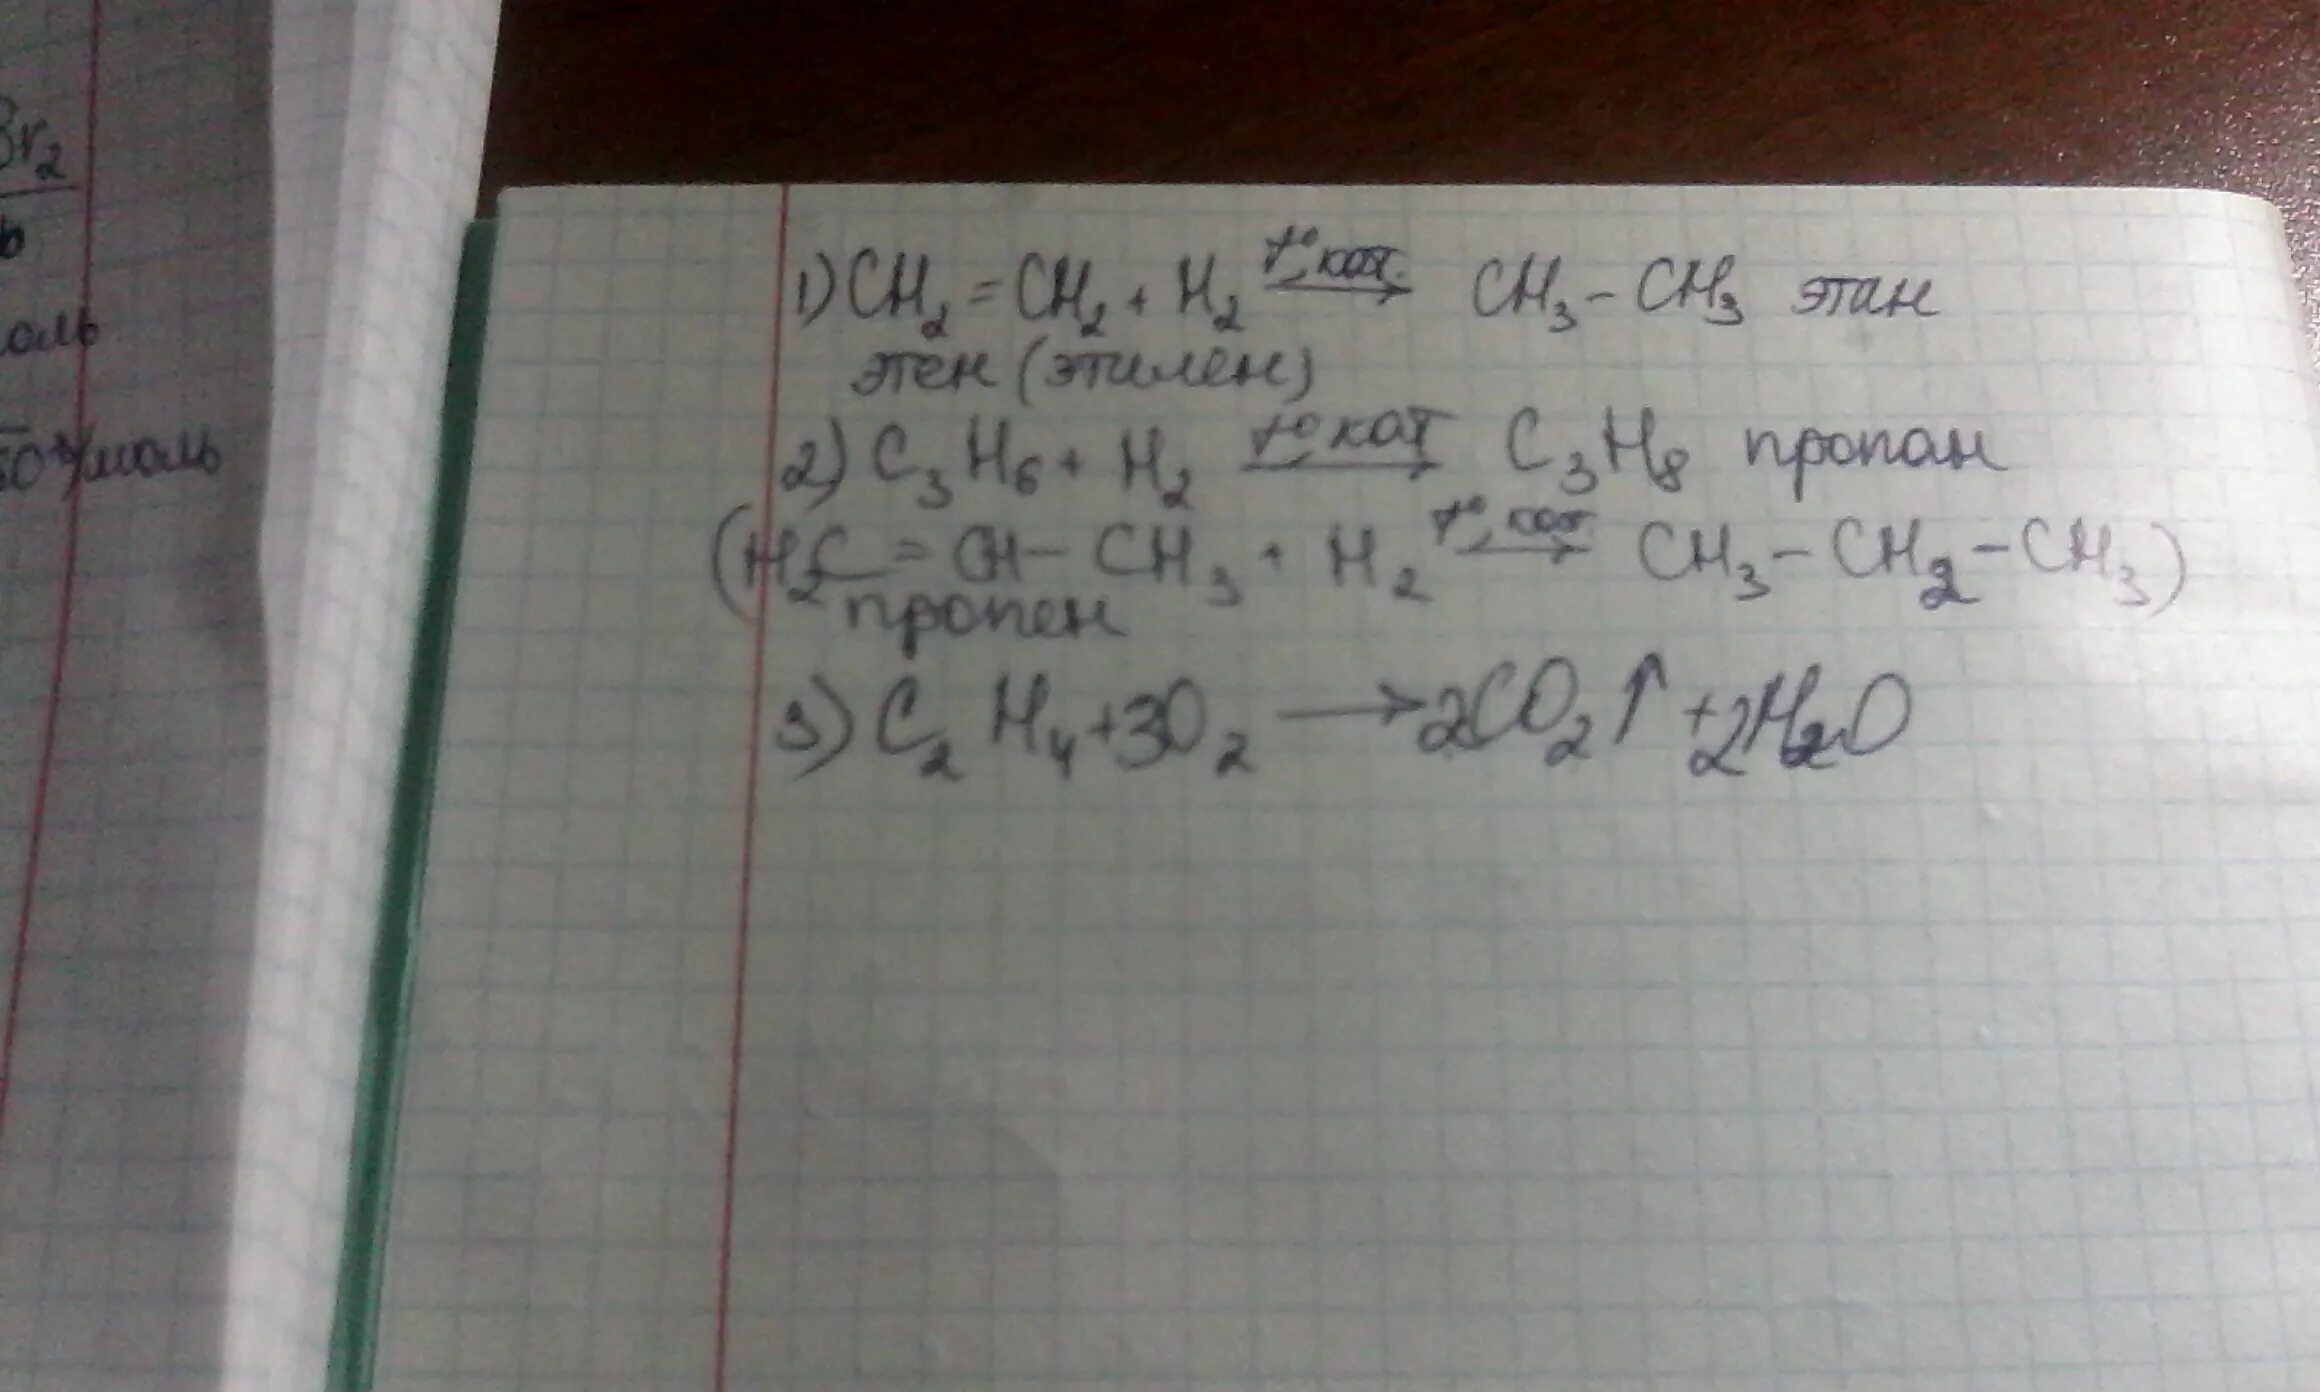 Br₂
ь
оль
50 г/моль
1) CH₂ = CH₂ + H₂ t°, кат. → CH₃ – CH₃ этан
этен (этилен)
2) C₃H₆ + H₂ t° кат → C₃H₈ пропан
(H₂C = CH – CH₃ + H₂ t°, кат → CH₃ – CH₂ – CH₃)
пропен
3) C₂H₄ + 3O₂ → 2CO₂↑ + 2H₂O